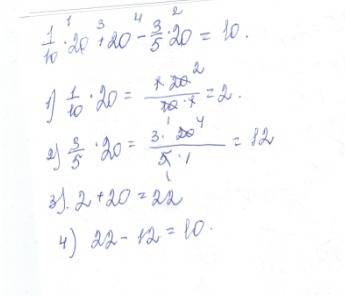 1/10 ·¹ 20 +³ 20 -⁴ 3/5 ·² 20 = 10.
1) 1/10 · 20 = (1 · 20 ²)/(10 · 1) ₁ = 2.
2) 3/5 · 20 = (3 · 20 ⁴)/(5 · 1) ₁ = 12
3). 2 + 20 = 22
4) 22 - 12 = 10.